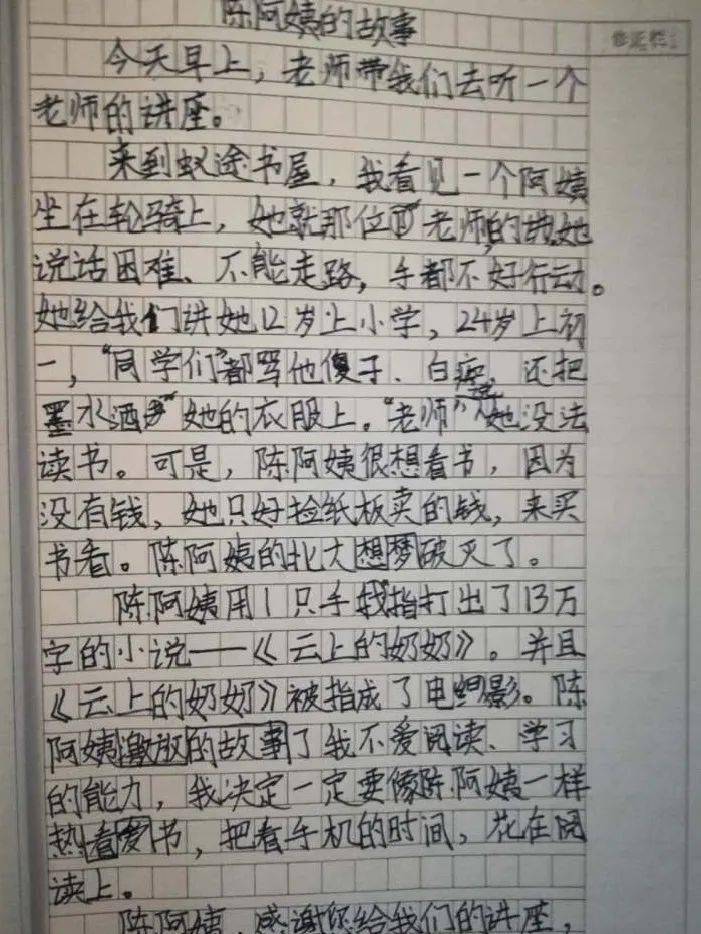 陈阿姨的故事
今天早上，老师带我们去听一个
老师的讲座。
来到蚁途书屋，我看见一个阿姨
坐在轮骑上，她就那位老师的她
说话困难、不能走路，手都不好行动。
她给我们讲她12岁上小学，24岁上初
一，"同学们"都骂他傻子、白痴，还把
墨水洒她的衣服上。"老师"她没法
读书。可是，陈阿姨很想看书，因为
没有钱，她只好捡纸板卖的钱，来买
书看。陈阿姨的北大想梦破灭了。
陈阿姨用1只手指打出了13万
字的小说——《云上的奶奶》。并且
《云上的奶奶》被指成了电影。陈
阿姨激放的故事了我不爱阅读、学习
的能力，我决定一定要像陈阿姨一样
热看爱书，把看手机的时间，花在阅
读上。
陈阿姨，感谢您给我们的讲座，